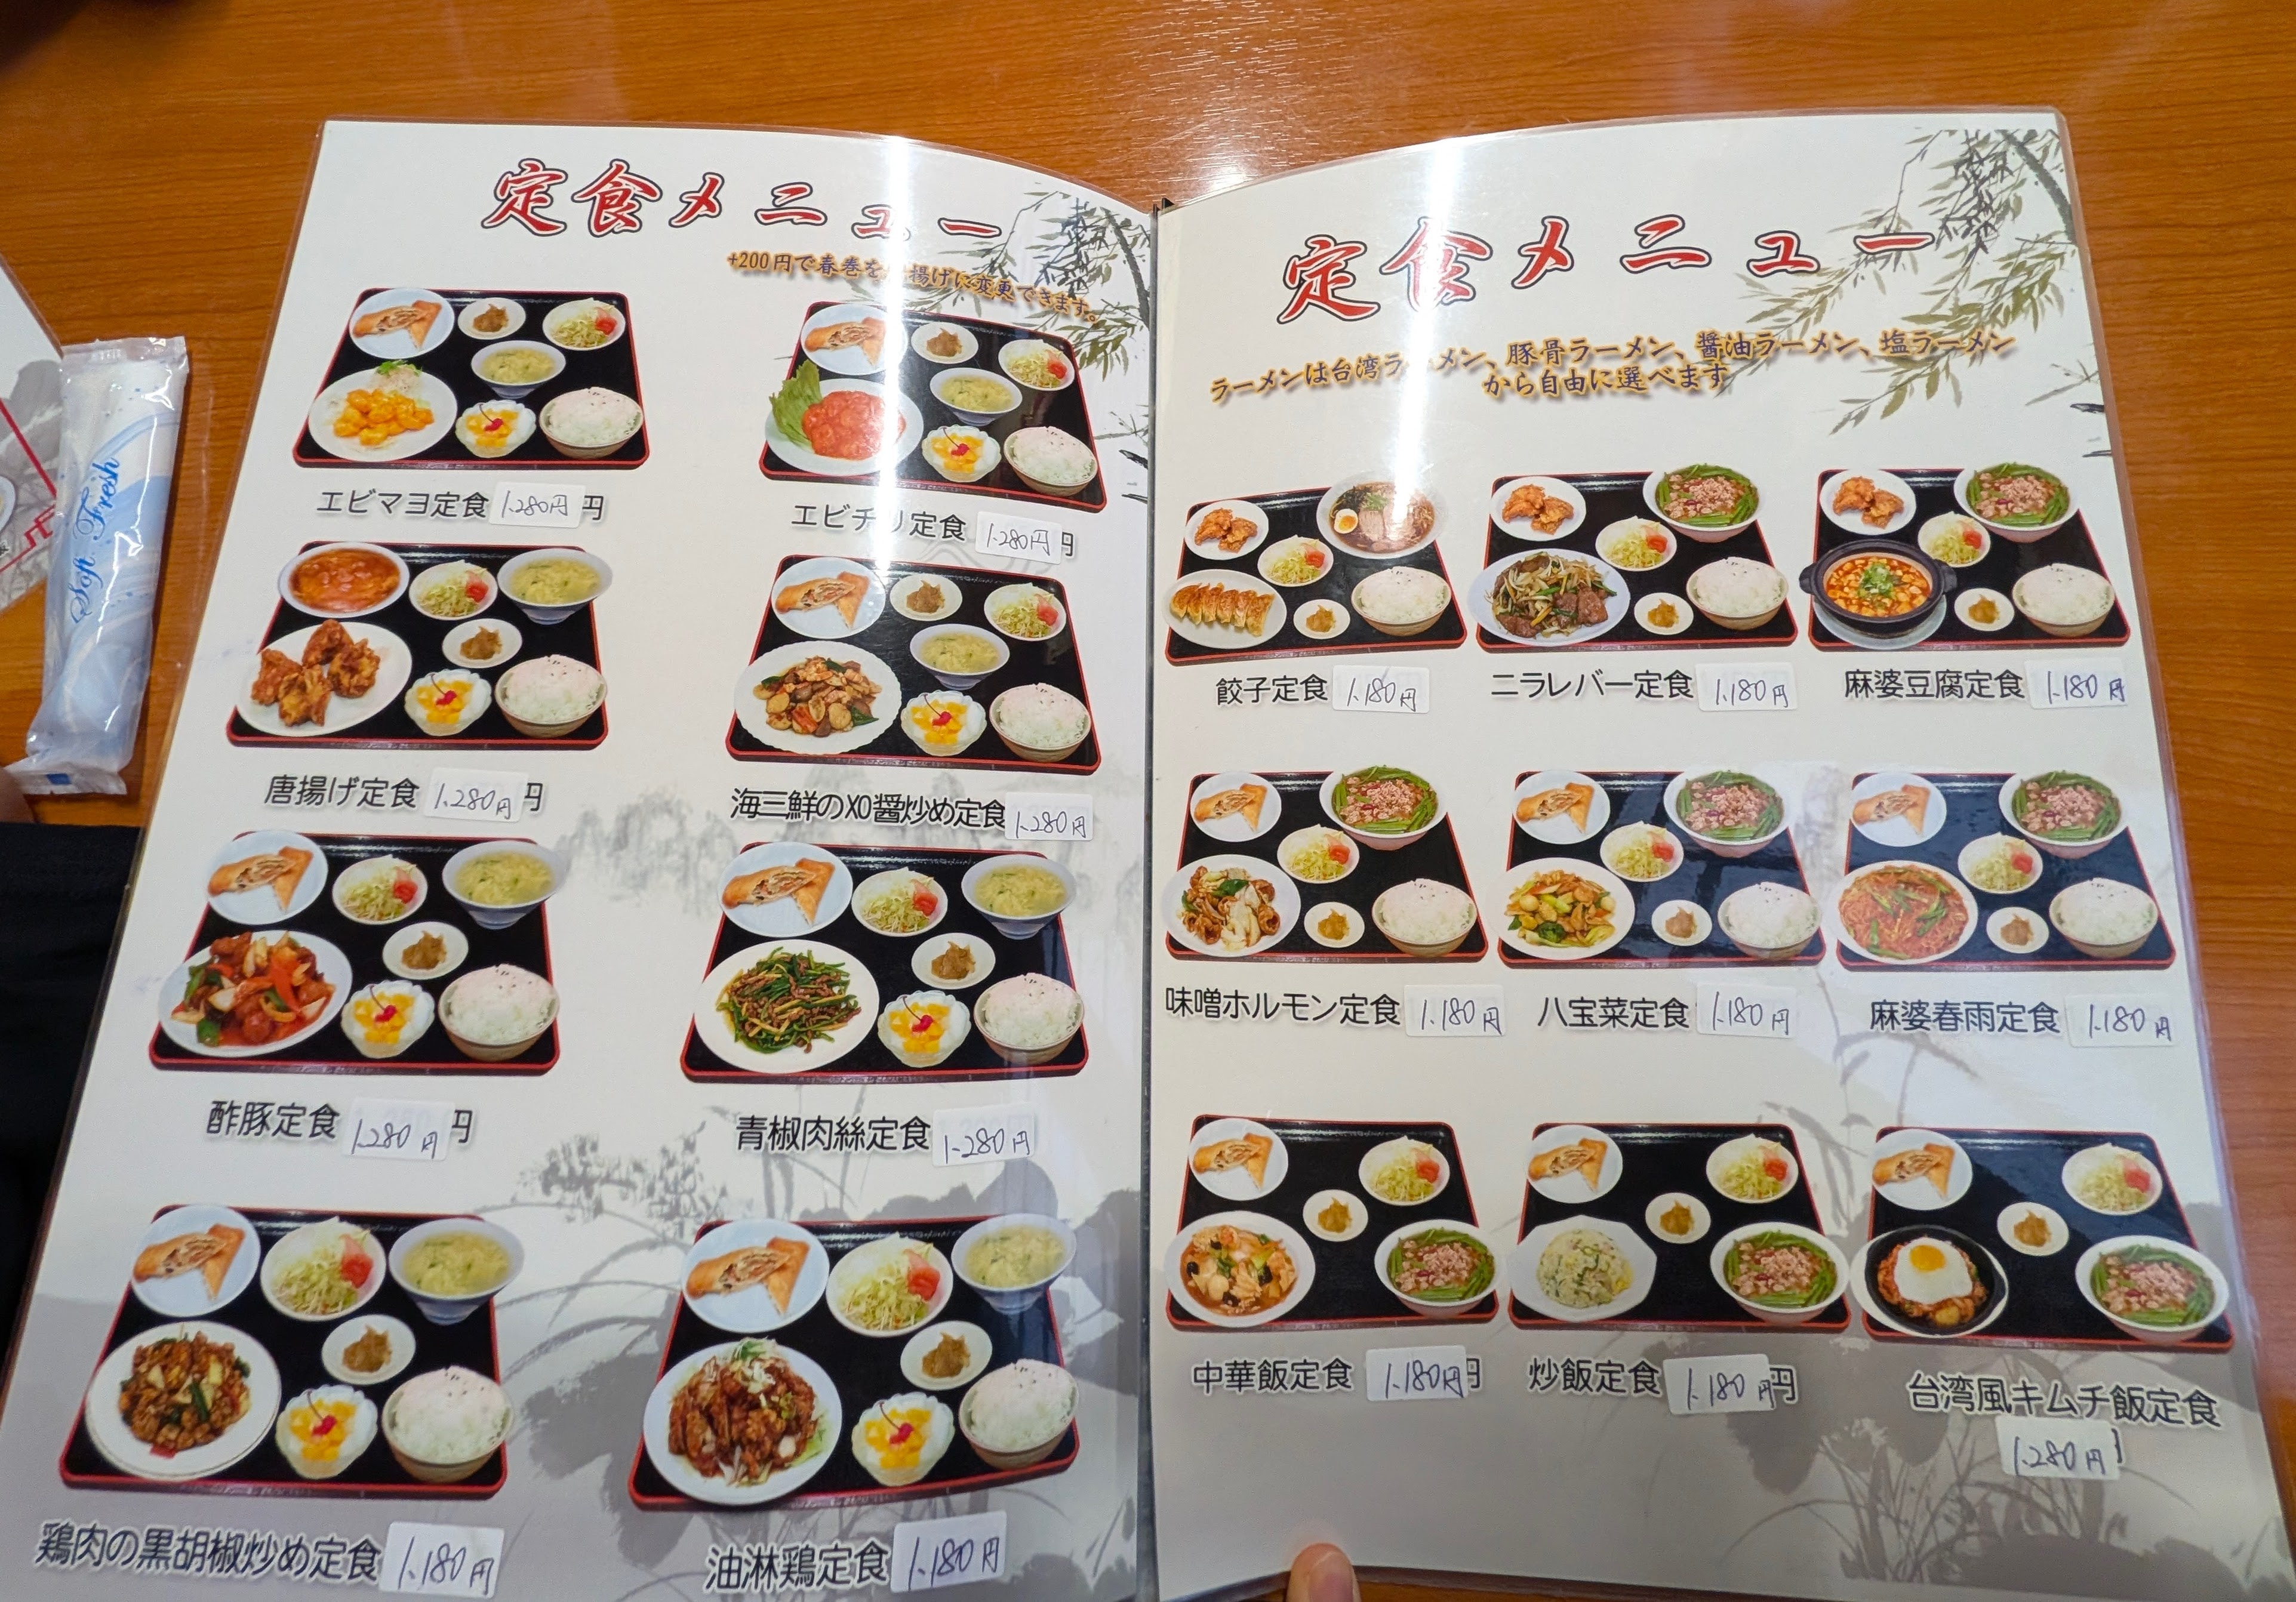 Soft Fresh
定食メニュー
+200円で春巻を唐揚げに変更できます。
エビマヨ定食 1.280円 円
エビチリ定食 1.280円 円
唐揚げ定食 1.280円 円
海三鮮のXO醤炒め定食 1.280円
酢豚定食 1.280円 円
青椒肉絲定食 1.280円
鶏肉の黒胡椒炒め定食 1.180円
油淋鶏定食 1.180円
定食メニュー
ラーメンは台湾ラーメン、豚骨ラーメン、醤油ラーメン、塩ラーメン
から自由に選べます
餃子定食 1.180円
ニラレバー定食 1.180円
麻婆豆腐定食 1.180円
味噌ホルモン定食 1.180円
八宝菜定食 1.180円
麻婆春雨定食 1.180円
中華飯定食 1.180円 円
炒飯定食 1.180円 円
台湾風キムチ飯定食
1.280円